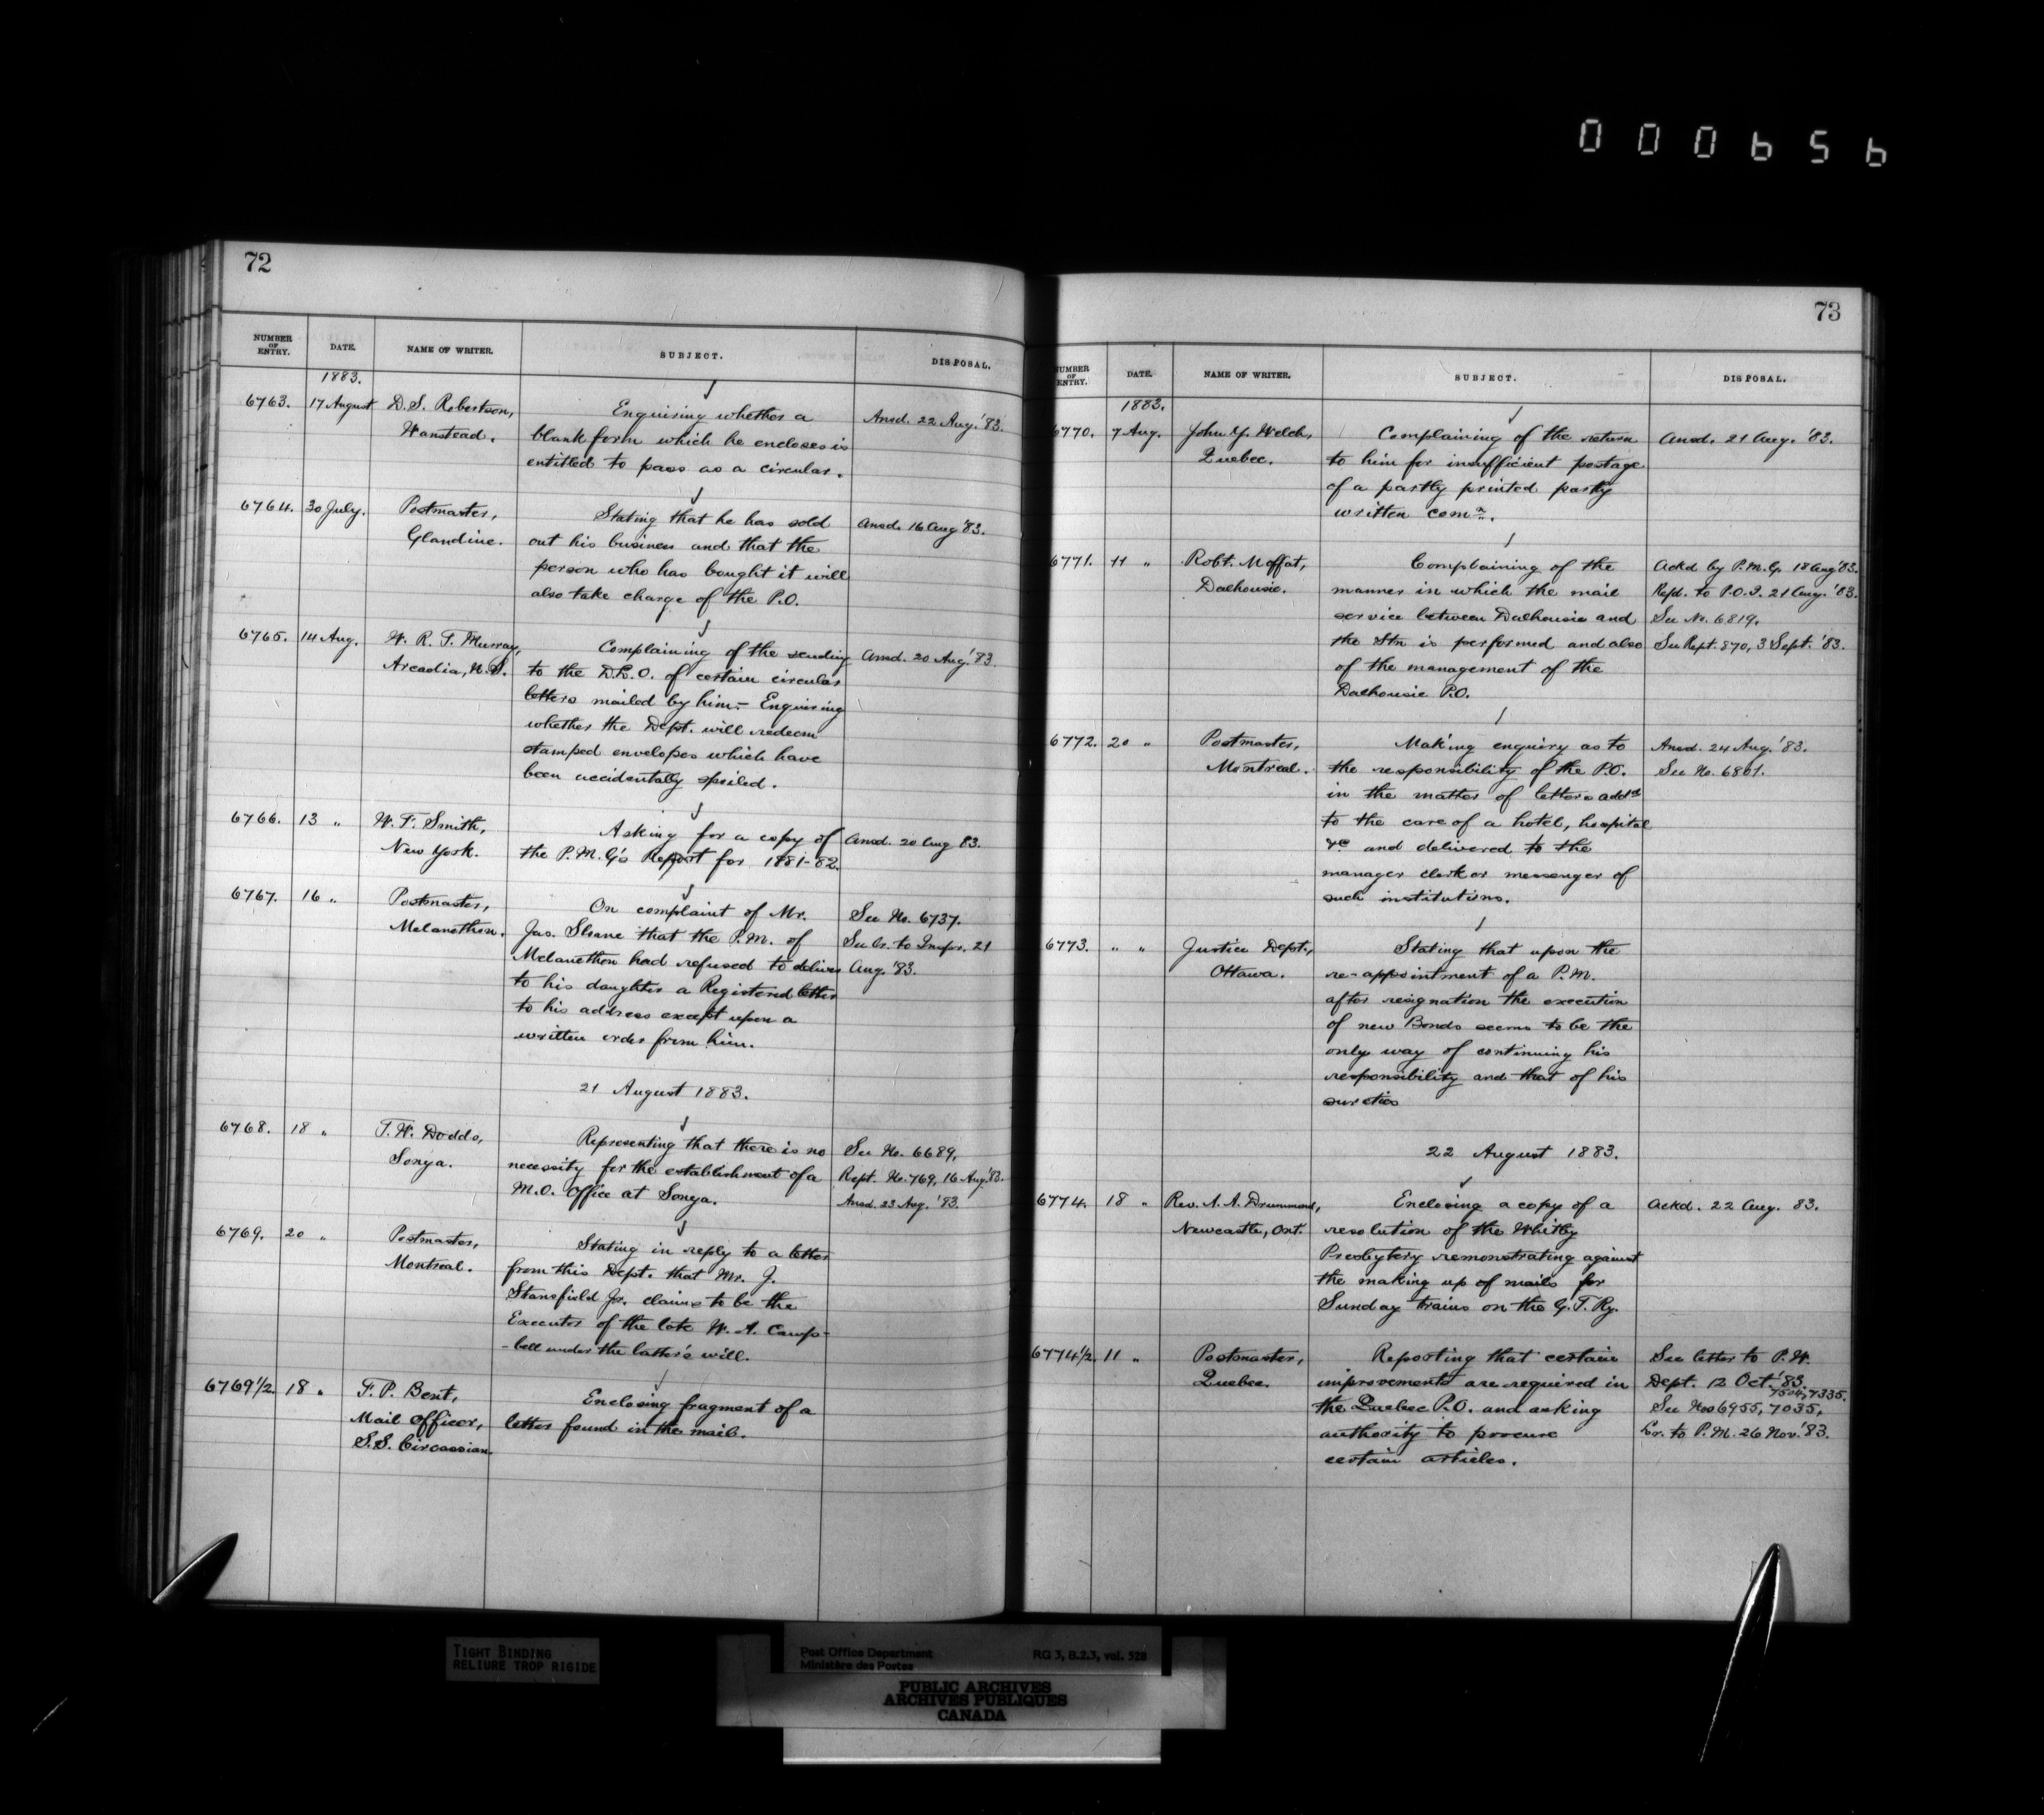 000656
72
NUMBER OF ENTRY. DATE. NAME OF WRITER. SUBJECT. DISPOSAL.
1883.
6763. 17 August D. S. Robertson, Enquiring whether a Ansd. 22 Aug. '83.
Wanstead. blank form which he encloses is
entitled to pass as a circular.
6764. 30 July. Postmaster, Stating that he has sold Ansd. 16 Aug '83.
Glandine. out his business and that the
person who has bought it will
also take charge of the P.O.
6765. 14 Aug. W. R. T. Murray, Complaining of the sending Ansd. 20 Aug. '83.
Arcadia, N.S. to the D.L.O. of certain circular
letters mailed by him.- Enquiring
whether the Dept. will redeem
stamped envelopes which have
been accidentally spoiled.
6766. 13 " W. T. Smith, Asking for a copy of Ansd. 20 Aug 83.
New York. the P.M.G's Report for 1881-82.
6767. 16 " Postmaster, On complaint of Mr. See No. 6737.
Melancthon. Jas. Sloane that the P.M. of See Lr. to Inspr. 21
Melancthon had refused to deliver Aug. '83.
to his daughter a Registered letter
to his address except upon a
written order from him.
21 August 1883.
6768. 18 " T. W. Dodds, Representing that there is no See No. 6689.
Sonya. necessity for the establishment of a Rept. No. 769, 16 Aug. '83.
M.O. Office at Sonya. Ansd. 23 Aug. '83.
6769. 20 " Postmaster, Stating in reply to a letter
Montreal. from this Dept. that Mr. J.
Stansfield Jr. claims to be the
Executor of the late W. A. Camp-
-bell under the latter's will.
6769 1/2. 18 " F. P. Bent, Enclosing fragment of a
Mail Officer, letter found in the mail.
S.S. Circassian.
73
NUMBER OF ENTRY. DATE. NAME OF WRITER. SUBJECT. DISPOSAL.
1883.
6770. 7 Aug. John Y. Welch, Complaining of the return Ansd. 21 Aug. '83.
Quebec. to him for insufficient postage
of a partly printed partly
written comn.
6771. 11 " Robt. Moffat, Complaining of the Ackd by P.M.G. 18 Aug '83.
Dalhousie. manner in which the mail Refd. to P.O.I. 21 Aug. '83.
service between Dalhousie and See No. 6819.
the Stn is performed and also See Rept. 870, 3 Sept. '83.
of the management of the
Dalhousie P.O.
6772. 20 " Postmaster, Making enquiry as to Ansd. 24 Aug. '83.
Montreal. the responsibility of the P.O. See No. 6861.
in the matter of letters addd
to the care of a hotel, hospital
&c and delivered to the
manager clerk or messenger of
such institutions.
6773. " " Justice Dept., Stating that upon the
Ottawa. re-appointment of a P.M.
after resignation the execution
of new Bonds seems to be the
only way of continuing his
responsibility and that of his
sureties
22 August 1883.
6774. 18 " Rev. A. A. Drummond, Enclosing a copy of a Ackd. 22 Aug. 83.
Newcastle, Ont. resolution of the Whitby
Presbytery remonstrating against
the making up of mails for
Sunday trains on the G. T. Ry.
6774 1/2. 11 " Postmaster, Reporting that certain See letter to P.W.
Quebec. improvements are required in Dept. 12 Oct. '83.
7504, 7335.
the Quebec P.O. and asking See Nos 6955, 7035,
authority to procure Lr. to P.M. 26 Nov. '83.
certain articles.
TIGHT BINDING
RELIURE TROP RIGIDE
Post Office Department RG 3, B.2.3, vol. 528
Ministère des Postes
PUBLIC ARCHIVES
ARCHIVES PUBLIQUES
CANADA